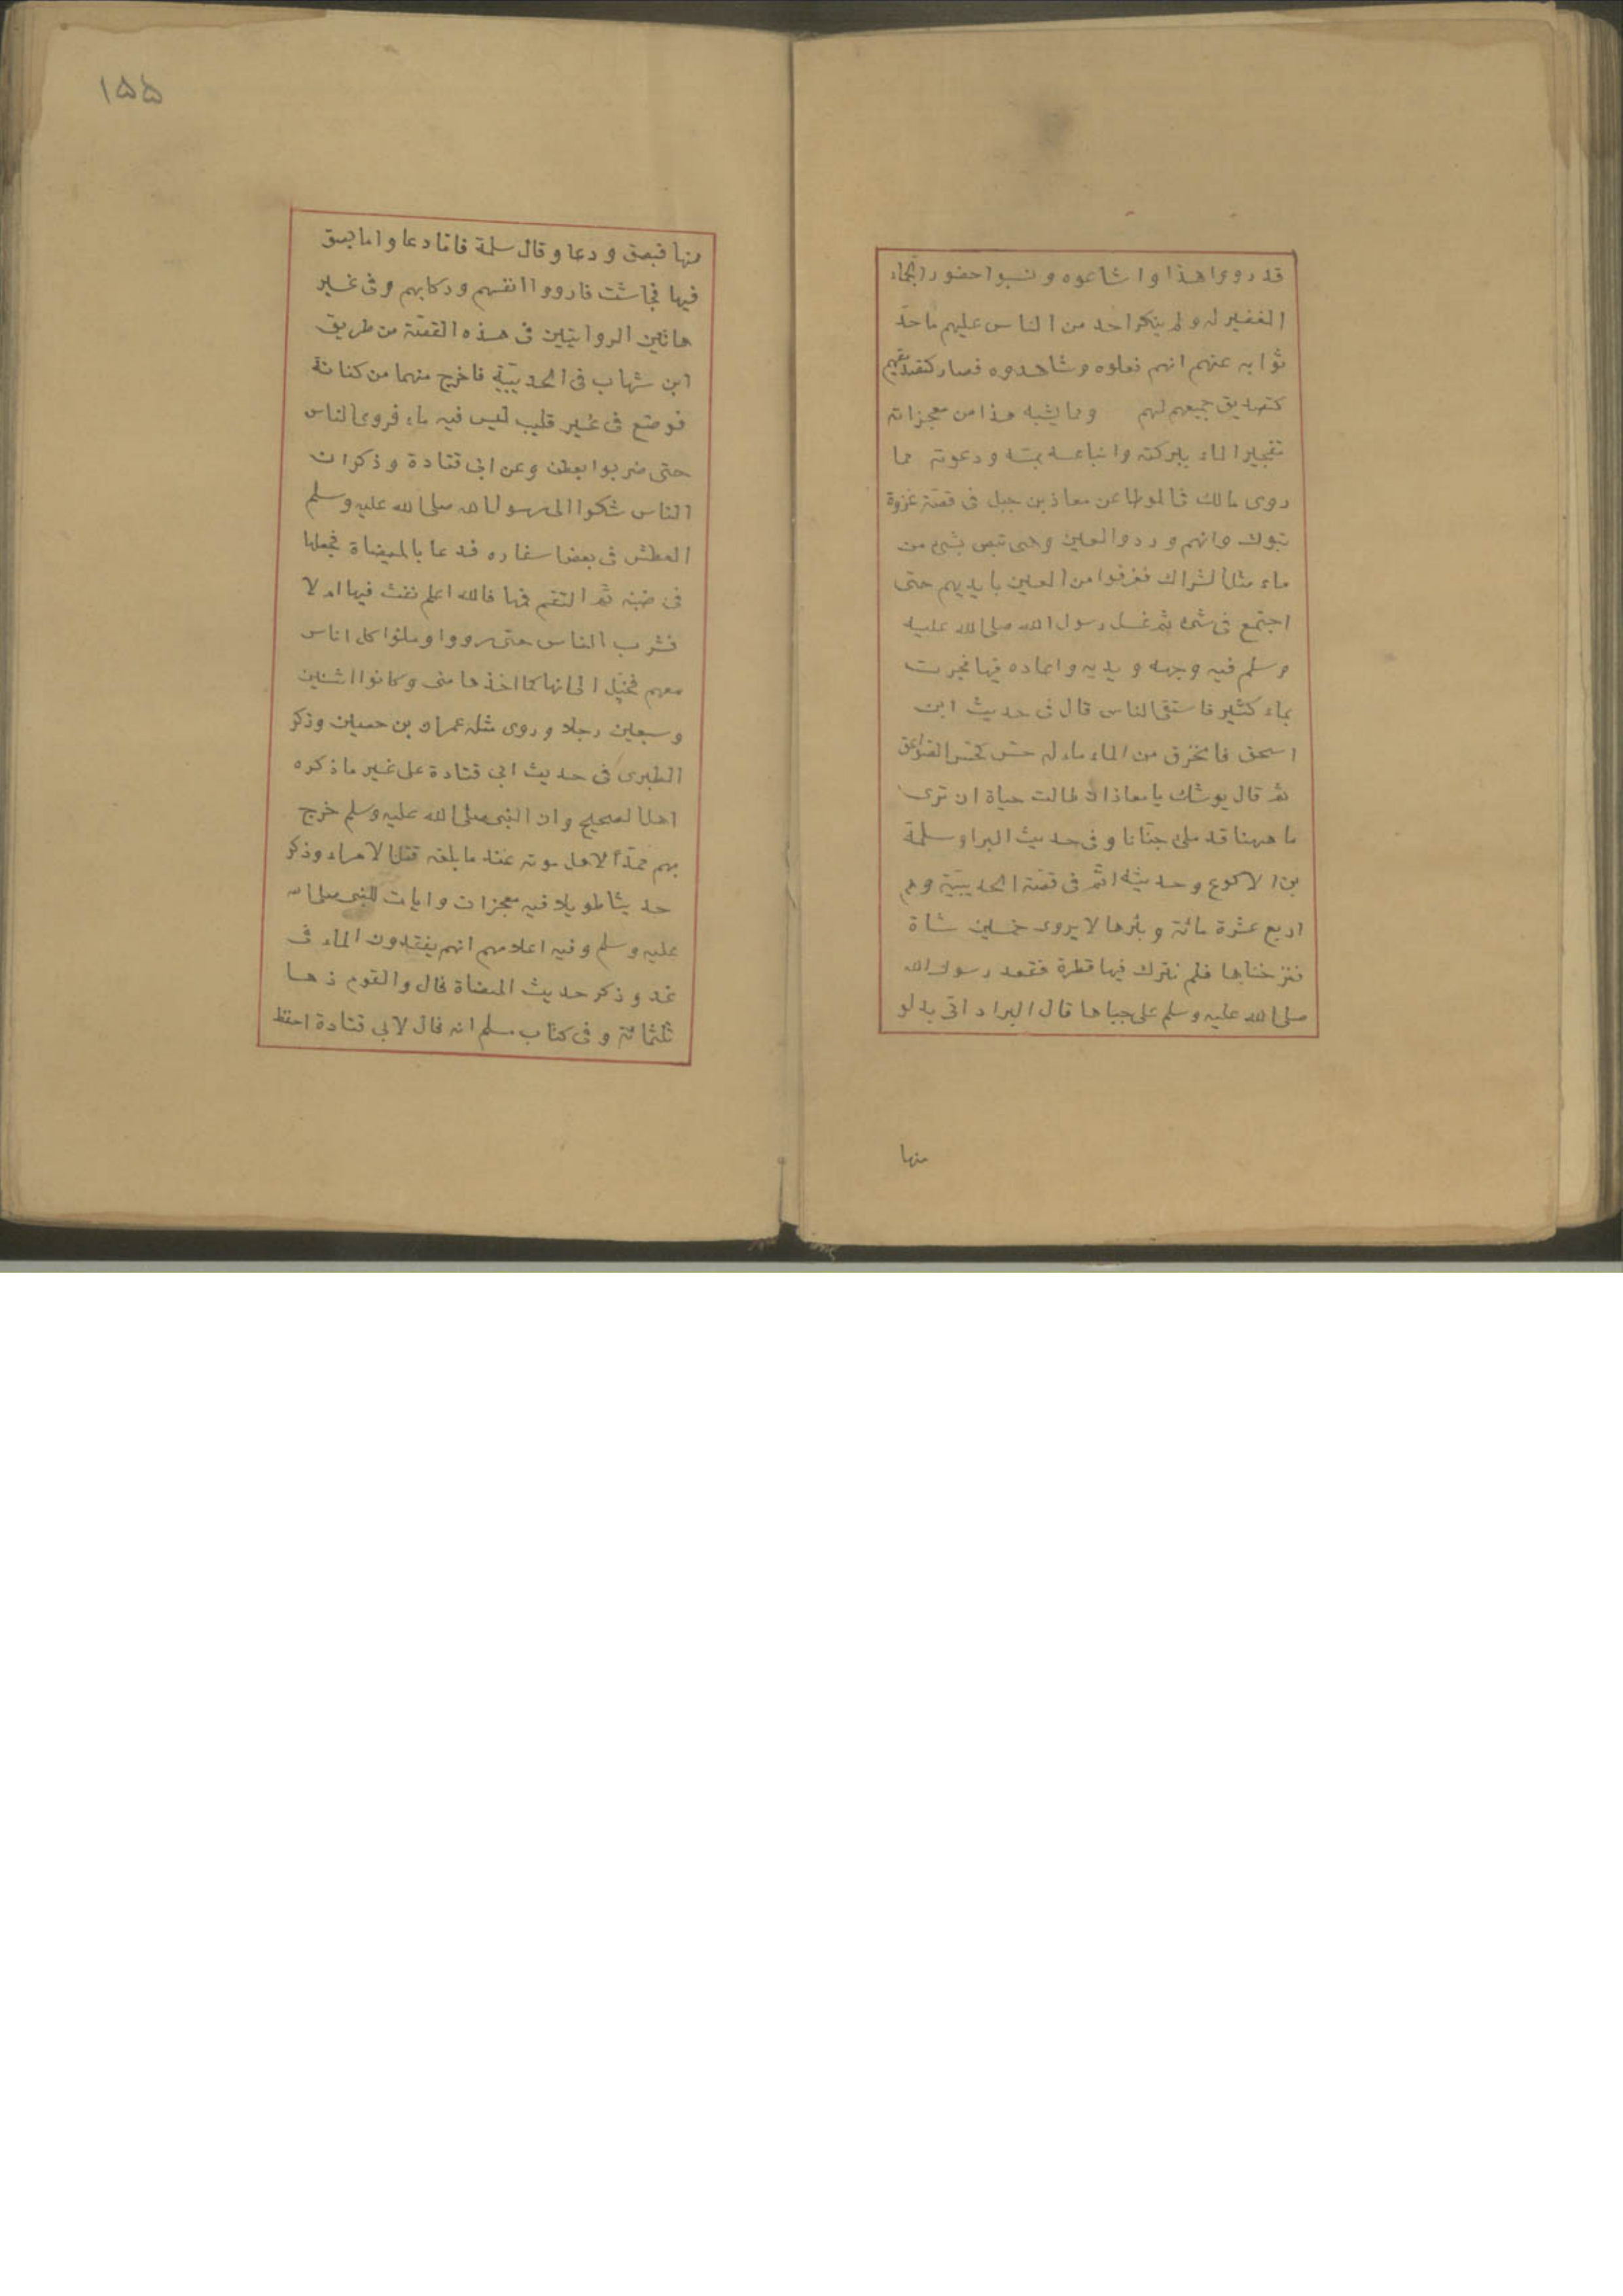 قد رووا هذا واشاعوه ونسبوا حضور الجماء
الغفير له ولم ينكر احد من الناس عليهم ما حد
ثوا به عنهم انهم فعلوه وشاهدوه فصار كتصديقهم
كتصديق جميعهم لهم ومما يشبه هذا من معجزاته
تفجير الماء ببركته وانباعه بمسه ودعوته مما
روى مالك في الموطا عن معاذ بن جبل في قصة غزوة
تبوك وانهم وردوا العين وهي تبص بشئ من
ماء مثل الشراك فغرفوا من العين بايديهم حتى
اجتمع في شئ ثم غسل رسول الله صلى الله عليه
وسلم فيه وجهه ويديه واعاده فيها فجرت
بماء كثير فاستقى الناس قال في حديث ابن
اسحق فانخرق من الماء ماء له حس كحس الصواعق
ثم قال يوشك يا معاذ ان طالت حياة ان ترى
ما ههنا قد ملئ جنانا وفي حديث البراء وسلمة
بن الاكوع وحديثه اتم في قصة الحديبية وهم
اربع عشرة مائة وبئرها لا يروى خمسين شاة
فنزحناها فلم نترك فيها قطرة فقعد رسول الله
صلى الله عليه وسلم على جباها قال البراء اتى بدلو
منها
١٥٥
منها فبصق ودعا وقال سلمة فاما دعا واما بصق
فيها فجاشت فارووا انفسهم وركابهم وفي غير
هاتين الروايتين في هذه القصة من طريق
ابن شهاب في الحديبية فاخرج منهما من كنانة
فوضع في غير قليب ليس فيه ماء فروى الناس
حتى ضربوا بعطن وعن ابي قتادة وذكر ان
الناس شكوا الى رسول الله صلى الله عليه وسلم
العطش في بعض اسفاره فدعا بالميضاة فجعلها
في ضبنه ثم التقم فمها فالله اعلم نفث فيها ام لا
فشرب الناس حتى رووا وملئوا كل اناس
معهم فخيل الي انها كما اخذها مني وكانوا اثنين
وسبعين رجلا وروى مثله عمران بن حصين وذكر
الطبرى في حديث ابي قتادة على غير ما ذكره
اهل الصحيح وان النبي صلى الله عليه وسلم خرج
بهم ممدا لاهل موته عند ما بلغه قتل الامراء وذكر
حديثا طويلا فيه معجزات وايات للنبي صلى الله
عليه وسلم وفيه اعلامهم انهم يفقدون الماء في
غد وذكر حديث الميضاة قال والقوم زها
ثلثمائة وفي كتاب مسلم انه قال لابي قتادة احفظ